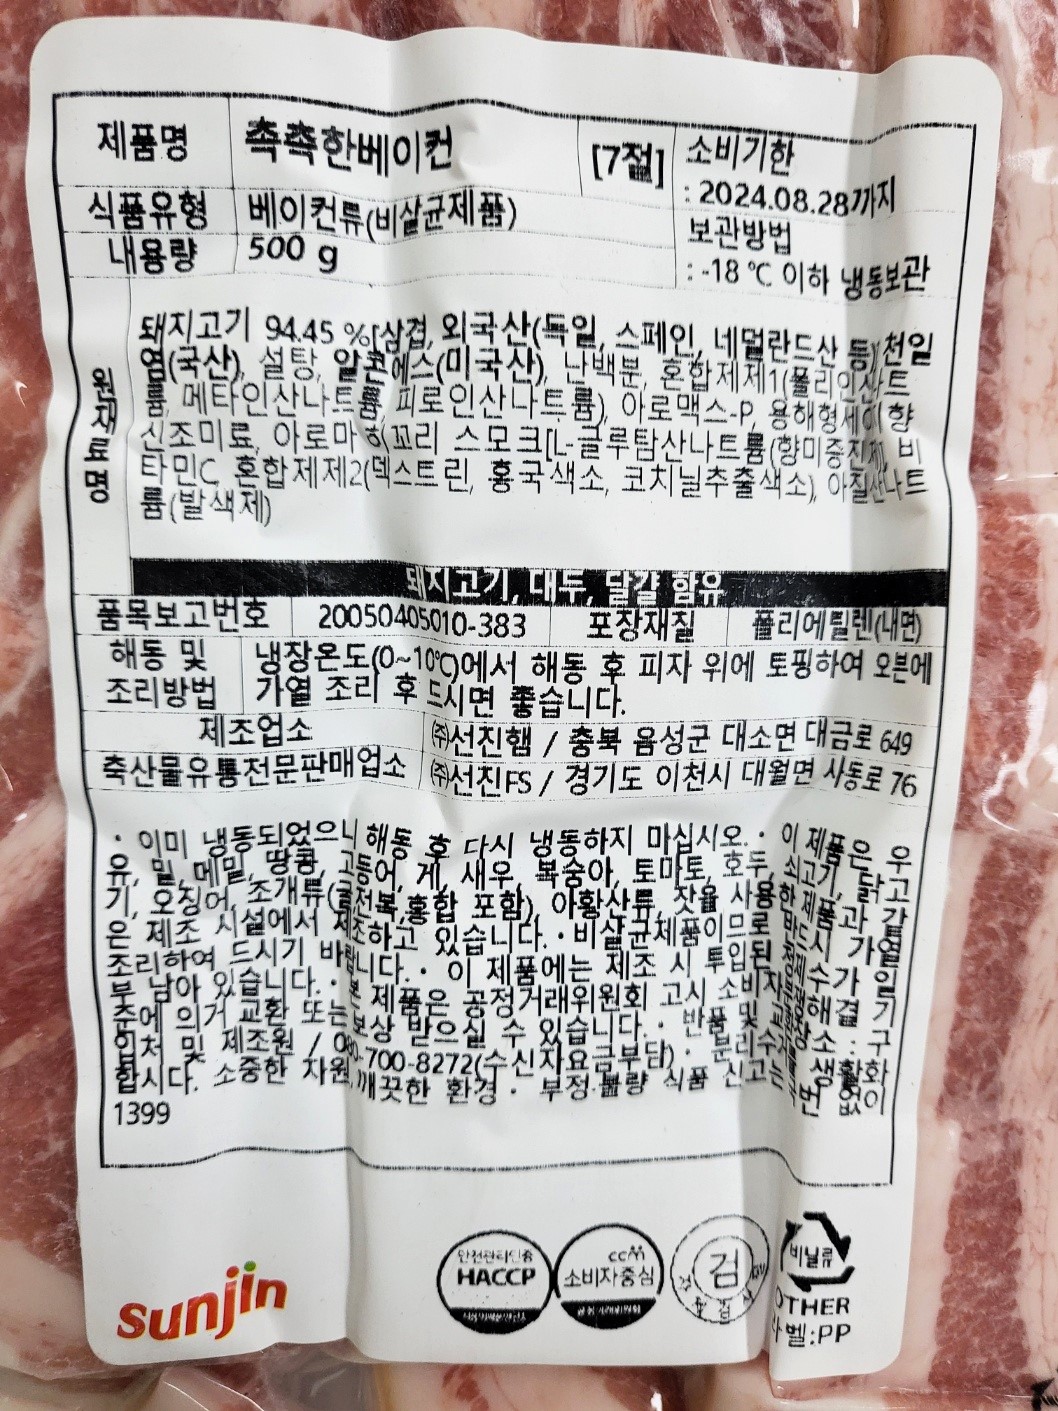 제품명 촉촉한베이컨 [7절] 소비기한
: 2024.08.28까지
식품유형 베이컨류(비살균제품) 보관방법
내용량 500 g : -18 ℃ 이하 냉동보관
원재료명
돼지고기 94.45 %[삼겹, 외국산(독일, 스페인, 네덜란드산 등)], 천일
염(국산), 설탕, 알콘에스(미국산), 난백분, 혼합제제1(폴리인산나트
륨, 메타인산나트륨, 피로인산나트륨), 아로맥스-P, 용해형세이향
신조미료, 아로마히꼬리 스모크[L-글루탐산나트륨(향미증진제), 비
타민C, 혼합제제2(덱스트린, 홍국색소, 코치닐추출색소), 아질산나트
륨(발색제)
돼지고기, 대두, 달걀 함유
품목보고번호 20050405010-383 포장재질 폴리에틸렌(내면)
해동 및 조리방법
냉장온도(0~10℃)에서 해동 후 피자 위에 토핑하여 오븐에
가열 조리 후 드시면 좋습니다.
제조업소 ㈜선진햄 / 충북 음성군 대소면 대금로 649
축산물유통전문판매업소 ㈜선진FS / 경기도 이천시 대월면 사동로 76
· 이미 냉동되었으니 해동 후 다시 냉동하지 마십시오. · 이 제품은 우
유, 밀, 메밀, 땅콩, 고등어, 게, 새우, 복숭아, 토마토, 호두, 쇠고기, 닭고
기, 오징어, 조개류(굴, 전복, 홍합 포함), 아황산류, 잣을 사용한 제품과 같
은 제조 시설에서 제조하고 있습니다. · 비살균제품이므로 반드시 가열
조리하여 드시기 바랍니다. · 이 제품에는 제조 시 투입된
부 남아 있습니다. · 본 제품은 공정거래위원회 고시 소비자
준에 의거 교환 또는 보상 받으실 수 있습니다. · 반품 및
입처 및 제조원 / 080-700-8272(수신자요금부담) · 분리수
합시다. 소중한 자원, 깨끗한 환경 · 부정·불량 식품 신고는
1399
sunjin
안전관리인증
HACCP
ccm
소비자중심
검
비닐류
OTHER
라벨:PP